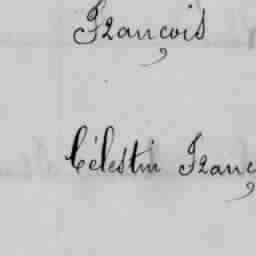 François
Célestin Franç